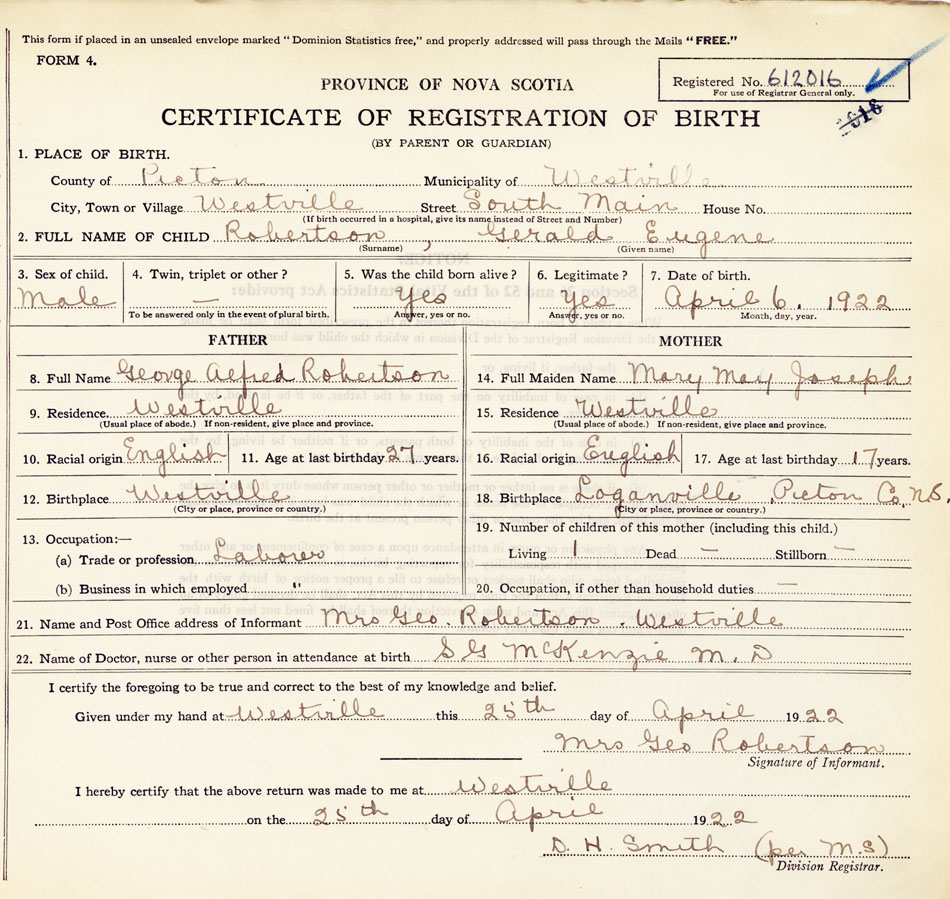 This form if placed in an unsealed envelope marked "Dominion Statistics free," and properly addressed will pass through the Mails "FREE."
FORM 4.
Registered No. 612016
For use of Registrar General only.
PROVINCE OF NOVA SCOTIA
CERTIFICATE OF REGISTRATION OF BIRTH
(BY PARENT OR GUARDIAN)
1. PLACE OF BIRTH.
County of Picton Municipality of Westville
City, Town or Village Westville Street South Main House No.
(If birth occurred in a hospital, give its name instead of Street and Number)
2. FULL NAME OF CHILD Robertson, Gerald Eugene
(Surname) (Given name)
3. Sex of child. 4. Twin, triplet or other? 5. Was the child born alive? 6. Legitimate? 7. Date of birth.
Male — Yes Yes April 6. 1922
To be answered only in the event of plural birth. Answer, yes or no. Answer, yes or no. Month, day, year.
FATHER
8. Full Name George Alfred Robertson
9. Residence. Westville
(Usual place of abode.) If non-resident, give place and province.
10. Racial origin English 11. Age at last birthday 27 years.
12. Birthplace Westville
(City or place, province or country.)
13. Occupation:—
(a) Trade or profession Laborer
(b) Business in which employed "
MOTHER
14. Full Maiden Name Mary May Joseph
15. Residence Westville
(Usual place of abode.) If non-resident, give place and province.
16. Racial origin English 17. Age at last birthday 17 years.
18. Birthplace Loganville Picton Co. N.S.
(City or place, province or country.)
19. Number of children of this mother (including this child.)
Living 1 Dead — Stillborn —
20. Occupation, if other than household duties —
21. Name and Post Office address of Informant Mrs Geo. Robertson. Westville
22. Name of Doctor, nurse or other person in attendance at birth S G McKenzie M. D
I certify the foregoing to be true and correct to the best of my knowledge and belief.
Given under my hand at Westville this 25th day of April 1922
Mrs Geo Robertson
Signature of Informant.
I hereby certify that the above return was made to me at Westville
on the 25th day of April 1922
D. H. Smith (per M.S)
Division Registrar.